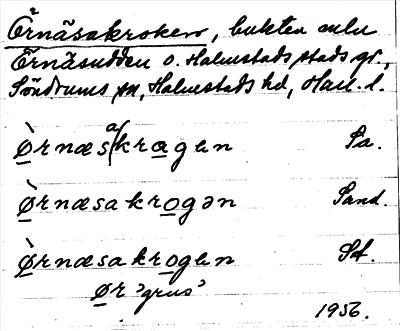 Örnäsakroken, bukten mln
Örnäsudden o. Halmstads stads gr.,
Söndrums sn, Halmstads hd, Hall. l.
Ørnæsakrogen Sa.
Ørnæsakrogən Sand.
Ørnæsakrogen St.
Ør 'grus'
1956.